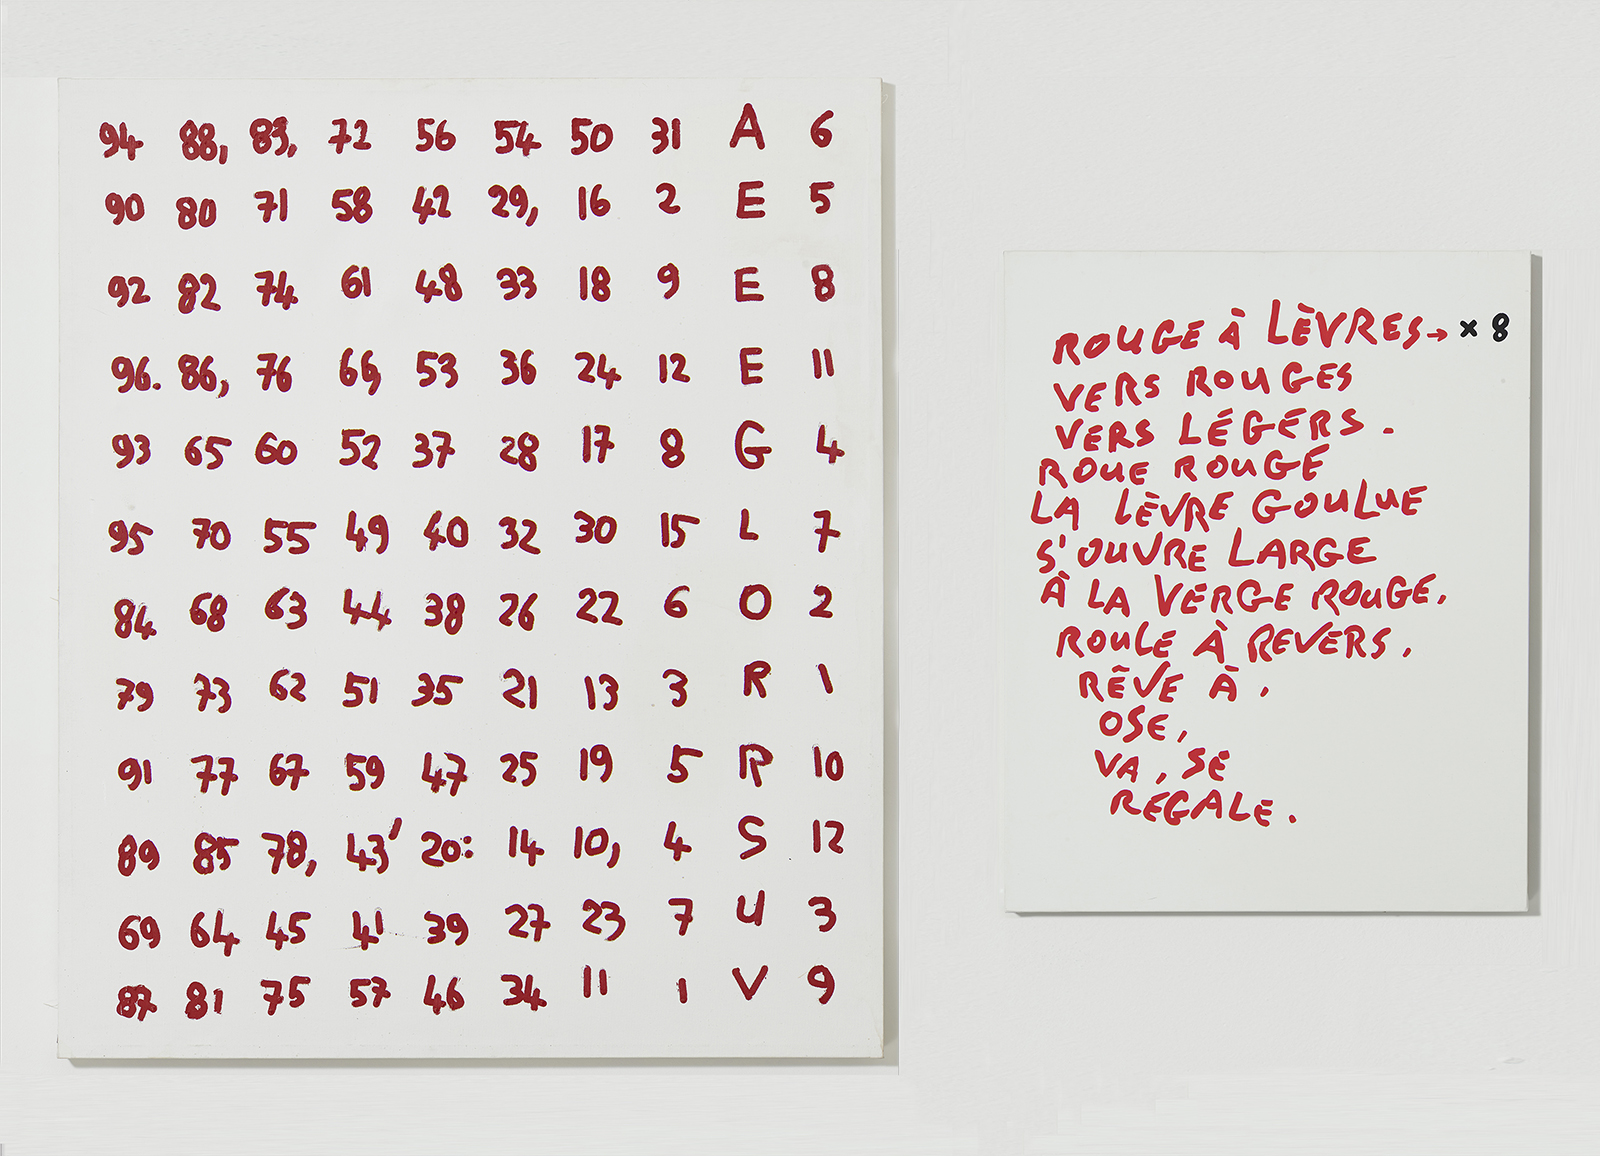 94 88, 83, 72 56 54 50 31 A 6
90 80 71 58 42 29, 16 2 E 5
92 82 74 61 48 33 18 9 E 8
96. 86, 76 66, 53 36 24 12 E 11
93 65 60 52 37 28 17 8 G 4
95 70 55 49 40 32 30 15 L 7
84 68 63 44 38 26 22 6 O 2
79 73 62 51 35 21 13 3 R 1
91 77 67 59 47 25 19 5 R 10
89 85 78, 43' 20: 14 10, 4 S 12
69 64 45 41 39 27 23 7 U 3
87 81 75 57 46 34 11 1 V 9
ROUGE À LÈVRES → × 8
VERS ROUGES
VERS LÉGERS.
ROUE ROUGE
LA LÈVRE GOULUE
S'OUVRE LARGE
À LA VERGE ROUGE,
ROULE À REVERS,
RÊVE À,
OSE,
VA, SE
RÉGALE.